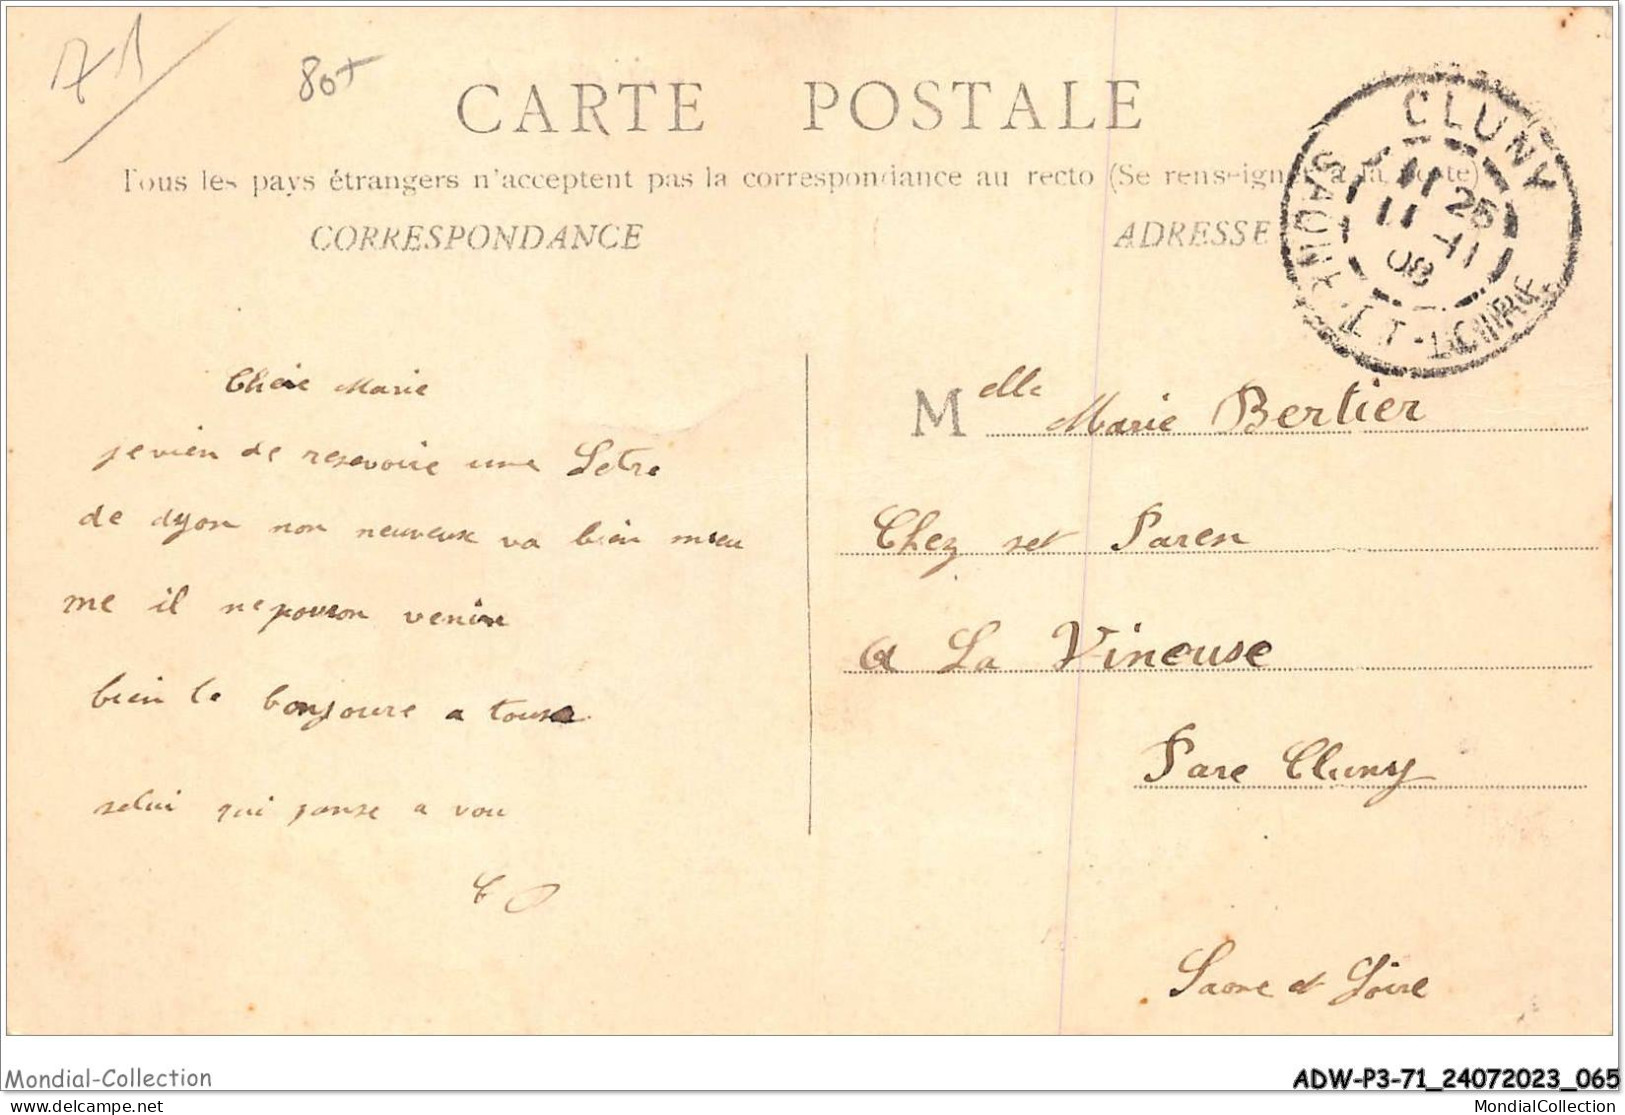 71
80+
CARTE POSTALE
Tous les pays étrangers n'acceptent pas la correspondance au recto (Se renseigner à la poste)
CORRESPONDANCE
ADRESSE
CLUNY
11 25
11 -11
08
SAÔNE-ET-LOIRE
Chere Marie
je vien de resevoire une Letre
de dyon non neuveux va bien mieu
me il ne pouron venire
bien le bonjoure a touse
selui qui panse a vou
Melle Marie Bertier
Chez ses Paren
a La Vineuse
Pare Cluny
Saone et Loire
Mondial-Collection
ADW-P3-71_24072023_065
delcampe.net
MondialCollection